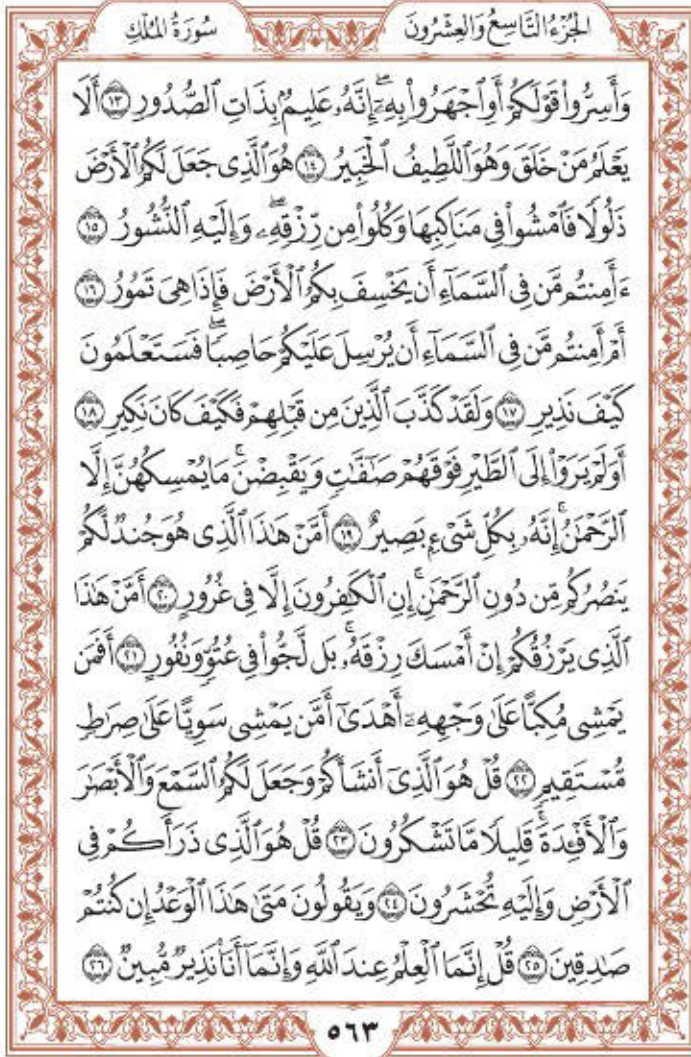 الجُزْءُ التَّاسِعُ وَالعِشْرُونَ
سُورَةُ المُلْكِ
وَأَسِرُّواْ قَوْلَكُمْ أَوِ ٱجْهَرُواْ بِهِۦٓۖ إِنَّهُۥ عَلِيمُۢ بِذَاتِ ٱلصُّدُورِ ١٣ أَلَا
يَعْلَمُ مَنْ خَلَقَ وَهُوَ ٱللَّطِيفُ ٱلْخَبِيرُ ١٤ هُوَ ٱلَّذِى جَعَلَ لَكُمُ ٱلْأَرْضَ
ذَلُولًا فَٱمْشُواْ فِى مَنَاكِبِهَا وَكُلُواْ مِن رِّزْقِهِۦۖ وَإِلَيْهِ ٱلنُّشُورُ ١٥
ءَأَمِنتُم مَّن فِى ٱلسَّمَآءِ أَن يَخْسِفَ بِكُمُ ٱلْأَرْضَ فَإِذَا هِىَ تَمُورُ ١٦
أَمْ أَمِنتُم مَّن فِى ٱلسَّمَآءِ أَن يُرْسِلَ عَلَيْكُمْ حَاصِبًاۖ فَسَتَعْلَمُونَ
كَيْفَ نَذِيرِ ١٧ وَلَقَدْ كَذَّبَ ٱلَّذِينَ مِن قَبْلِهِمْ فَكَيْفَ كَانَ نَكِيرِ ١٨
أَوَلَمْ يَرَوْاْ إِلَى ٱلطَّيْرِ فَوْقَهُمْ صَٰٓفَّٰتٍ وَيَقْبِضْنَۚ مَا يُمْسِكُهُنَّ إِلَّا
ٱلرَّحْمَٰنُۚ إِنَّهُۥ بِكُلِّ شَىْءِۭ بَصِيرٌ ١٩ أَمَّنْ هَٰذَا ٱلَّذِى هُوَ جُندٌ لَّكُمْ
يَنصُرُكُم مِّن دُونِ ٱلرَّحْمَٰنِۚ إِنِ ٱلْكَٰفِرُونَ إِلَّا فِى غُرُورٍ ٢٠ أَمَّنْ هَٰذَا
ٱلَّذِى يَرْزُقُكُمْ إِنْ أَمْسَكَ رِزْقَهُۥۚ بَل لَّجُّواْ فِى عُتُوٍّ وَنُفُورٍ ٢١ أَفَمَن
يَمْشِى مُكِبًّا عَلَىٰ وَجْهِهِۦٓ أَهْدَىٰٓ أَمَّن يَمْشِى سَوِيًّا عَلَىٰ صِرَٰطٍ
مُّسْتَقِيمٍ ٢٢ قُلْ هُوَ ٱلَّذِىٓ أَنشَأَكُمْ وَجَعَلَ لَكُمُ ٱلسَّمْعَ وَٱلْأَبْصَٰرَ
وَٱلْأَفْـِٔدَةَۚ قَلِيلًا مَّا تَشْكُرُونَ ٢٣ قُلْ هُوَ ٱلَّذِى ذَرَأَكُمْ فِى
ٱلْأَرْضِ وَإِلَيْهِ تُحْشَرُونَ ٢٤ وَيَقُولُونَ مَتَىٰ هَٰذَا ٱلْوَعْدُ إِن كُنتُمْ
صَٰدِقِينَ ٢٥ قُلْ إِنَّمَا ٱلْعِلْمُ عِندَ ٱللَّهِ وَإِنَّمَآ أَنَا۠ نَذِيرٌ مُّبِينٌ ٢٦
٥٦٣